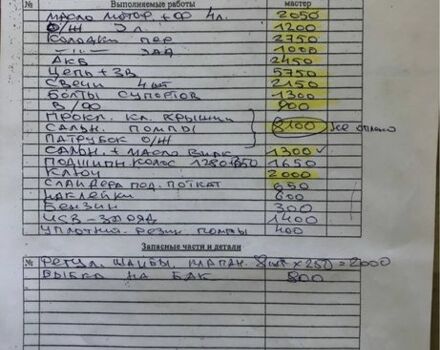 № Выполняемые работы мастер
МАСЛО МОТОР + ФФ 4л. 2050
О/Ж 3л. 1200
КОЛОДКИ ПЕР 2750
—"— ЗАД 1000
АКБ 2450
ЦЕПЬ + ЗВ 5750
СВЕЧИ 4шт 2150
БОЛТЫ СУПОРТОВ 1300
В/Ф 900
ПРОКЛ. КЛ. КРЫШКИ
САЛЬН. ПОМПЫ 8100
ПАТРУБОК О/Ж
САЛЬН. + МАСЛО ВИЛК 1300
ПОДШИПН КОЛОС 1280+350 1650
КЛЮЧ 2000
СЛАЙДЕРА ПОД. ПОТКАТ 650
НАКЛЕЙКИ 600
БЕНЗИН 300
USB-ЗАРЯД 1400
УПЛОТНИ. РЕЗИН ПОМПЫ 400
Запасные части и детали
№ РЕГУЛ. ШАЙБЫ КЛАПАН. 8шт × 250 = 2000
НА БАК 800